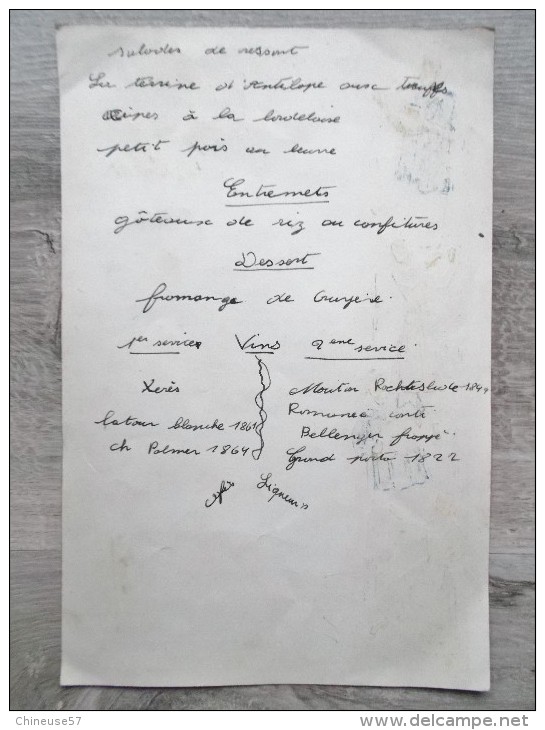 salades de ressort
La terrine d'Antilope aux truffes
Cèpes à la bordelaise
petit pois au beurre
Entremets
gâteaux de riz au confitures
Dessert
fromange de Gruyère.
1er service Vins 2eme service
Xerès
latour blanche 1861
ch Palmer 1864
Mouton Rochtislude 1844
Romanee conti
Bellenger frappé.
Grand porto 1822
cafés Liqueurs
Chineuse57
delcampe.net